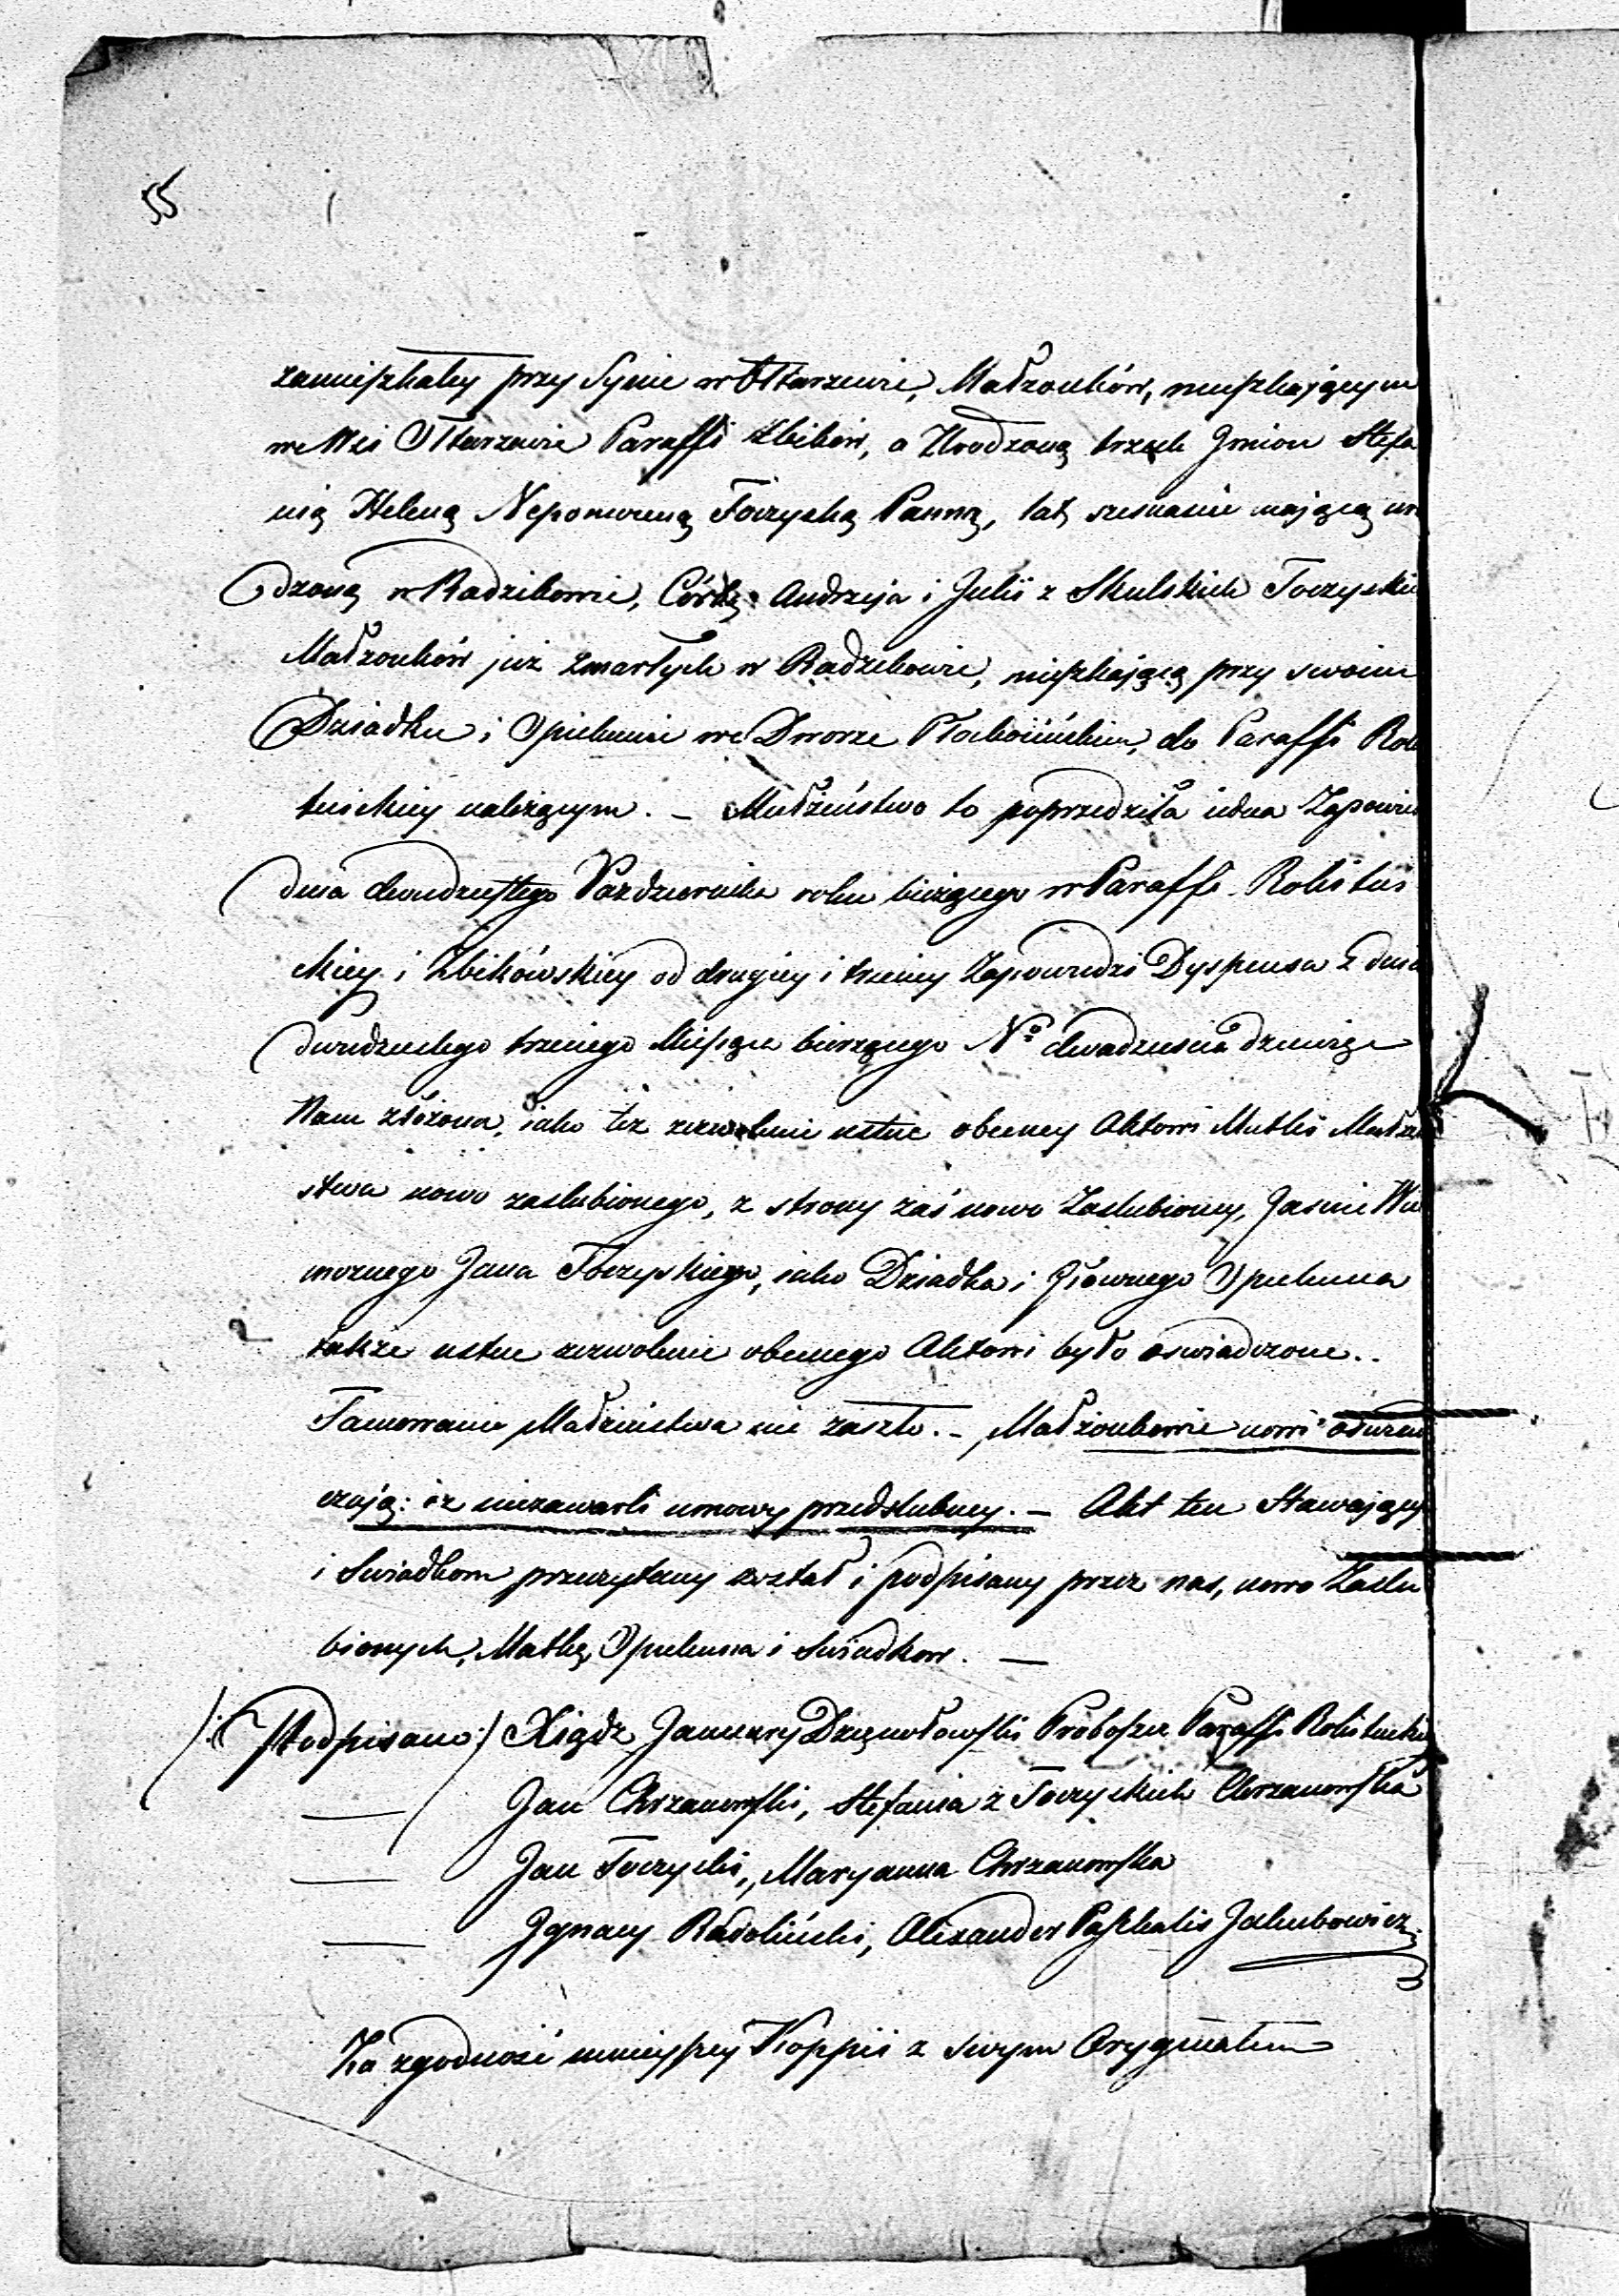 55
zamieszkałey przy Synie w Ołtarzewie, Małżonków, mieszkającym
we Wsi Ołtarzewie Paraffii Żbików, a Urodzoną trzech Jmion Stefa
nią Heleną Nepomuceną Toczyską Panną, lat szesnaście mającą uro
dzoną w Radzikowie, Córką Andrzeja i Julii z Skulskich Toczyskich
Małżonków już zmarłych w Radzikowie, mieszkającą przy swoim
Dziadku i Opiekunie we Dworze Płochocińskim, do Paraffii Roki
tnickiey należącym. – Małżeństwo to poprzedziła jedna Zapowiedź
dnia dwudziestego Pazdziernika roku bieżącego w Paraffii Rokitnic
kiey i Żbikówskiey od drugiey i trzeciey Zapowiedzi Dyspensa z dnia
dwudziestego trzeciego Miesiąca bieżącego No dwadzieścia dziewięć
Nam złożona, iako też zezwolenie ustne obecney Aktowi Matki Małżeń
stwa nowo zaslubionego, z strony zaś nowo Zaslubioney, Jaśnie Wiel
możnego Jana Toczyskiego, iako Dziadka i Głównego Opiekuna
także ustne zezwolenie obecnego Aktowi było oswiadczone..
Tamowanie Małżeństwa nie zaszło. – Małżonkowie nowi oswiad
czają: iż niezawarli umowy przedslubney. – Akt ten Stawającym
i Swiadkom przeczytany został i podpisany przez nas, nowo Zaslu
bionych, Matkę, Opiekuna i Swiadkow. –
/: Podpisano :/ Xiądz January Proboszcz Paraffii Rokitnickiey
Jan Chrzanowski, Stefania z Toczyskich Chrzanowska
Jan Toczyski, Maryanna Chrzanowska
Jgnacy Radoliński, Alexander Paschalis Jakubowicz
Za zgodność ninieyszey Koppii z swym Oryginałem